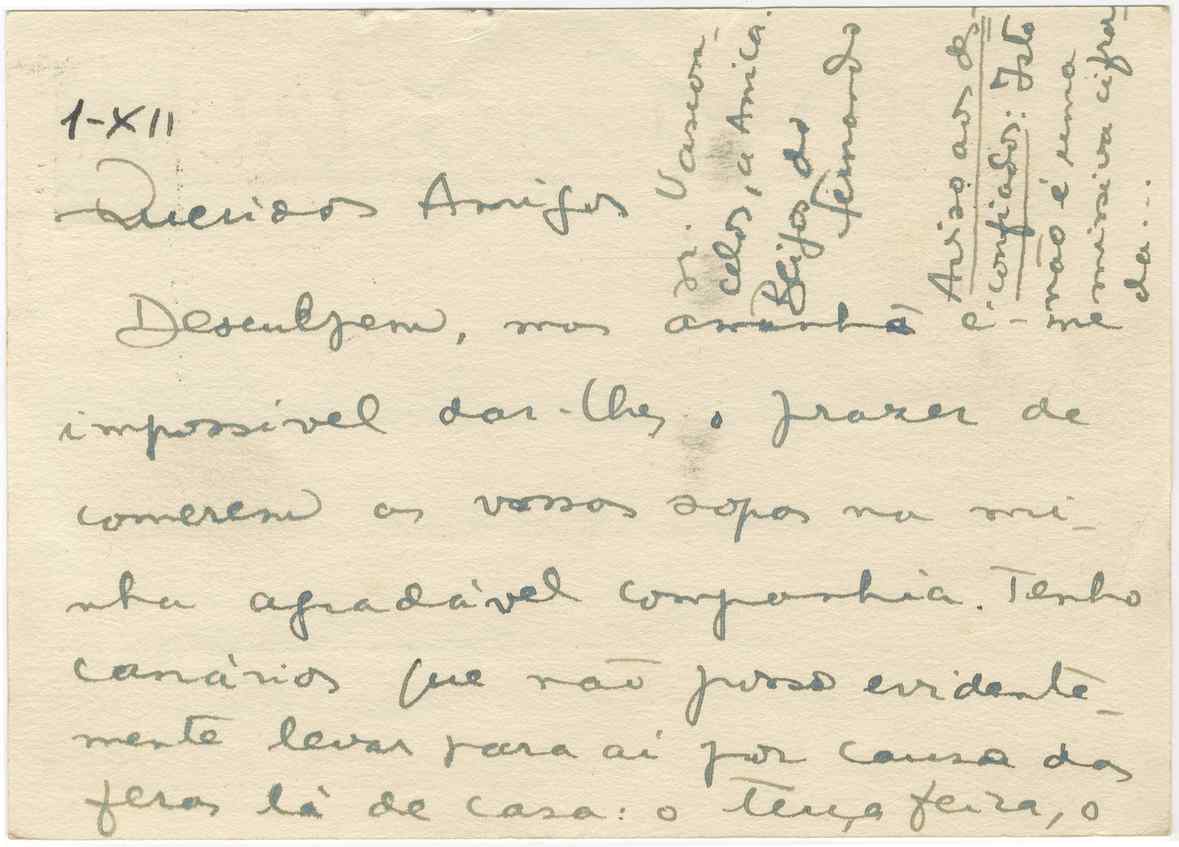 1-XII
Queridos Amigos
Desculpem, mas amanhã é-me
impossível dar-lhes o prazer de
comerem as vossas sopas na mi-
nha agradável companhia. Tenho
canários que não posso evidente-
mente levar para aí por causa das
feras lá de casa: o Terça feira, o
Sr. Vascon-
celos, a Amica.
Beijos do
Fernando
Aviso aos des-
confiados: Isto
não é uma
missiva cifra-
da...